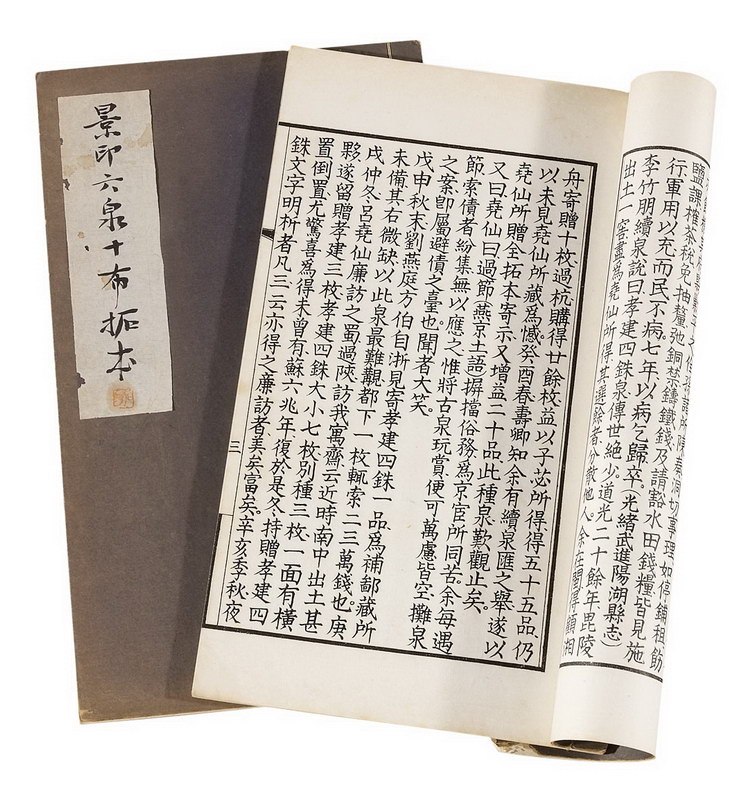 景印六泉十布拓本
陳奏洞切事理如停鋪租飭
鹽課榷茶稅免抽釐弛銅禁鑄鐵錢乃請豁水田錢糧皆見施
行軍用以充而民不病七年以病乞歸卒。(光緒武進陽湖縣志)
李竹朋續泉說曰孝建四銖泉傳世絕少道光二十餘年毘陵
出土一窖盡爲堯仙所得其選餘者分散他人。余在關得顧湘
舟寄贈十枚過杭購得廿餘枚益以子苾所得得五十五品仍
以未見堯仙所藏爲憾癸酉春壽卿知余有續泉匯之舉遂以
堯仙所贈全拓本寄示又增益二十品此種泉歎觀止矣。
又曰堯仙曰過節燕京土語摒擋俗務爲京官所同苦余每遇
節索債者紛集無以應之惟將古泉玩賞便可萬慮皆空攤泉
之案卽屬避債之臺也聞者大笑。
戊申秋末劉燕庭方伯自浙見寄孝建四銖一品爲補鄙藏所
未備其右微缺以此泉最難觀都下一枚輒索二三萬錢也庚
戌仲冬呂堯仙廉訪之蜀過陝訪我寓齋云近時南中出土甚
夥遂留贈孝建三枚孝建四銖大小七枚別種三枚一面有橫
置倒置尤驚喜爲得未曾有蘇六兆年復於是冬持贈孝建四
銖文字明析者凡三云亦得之廉訪者美矣富矣辛亥季秋夜
三